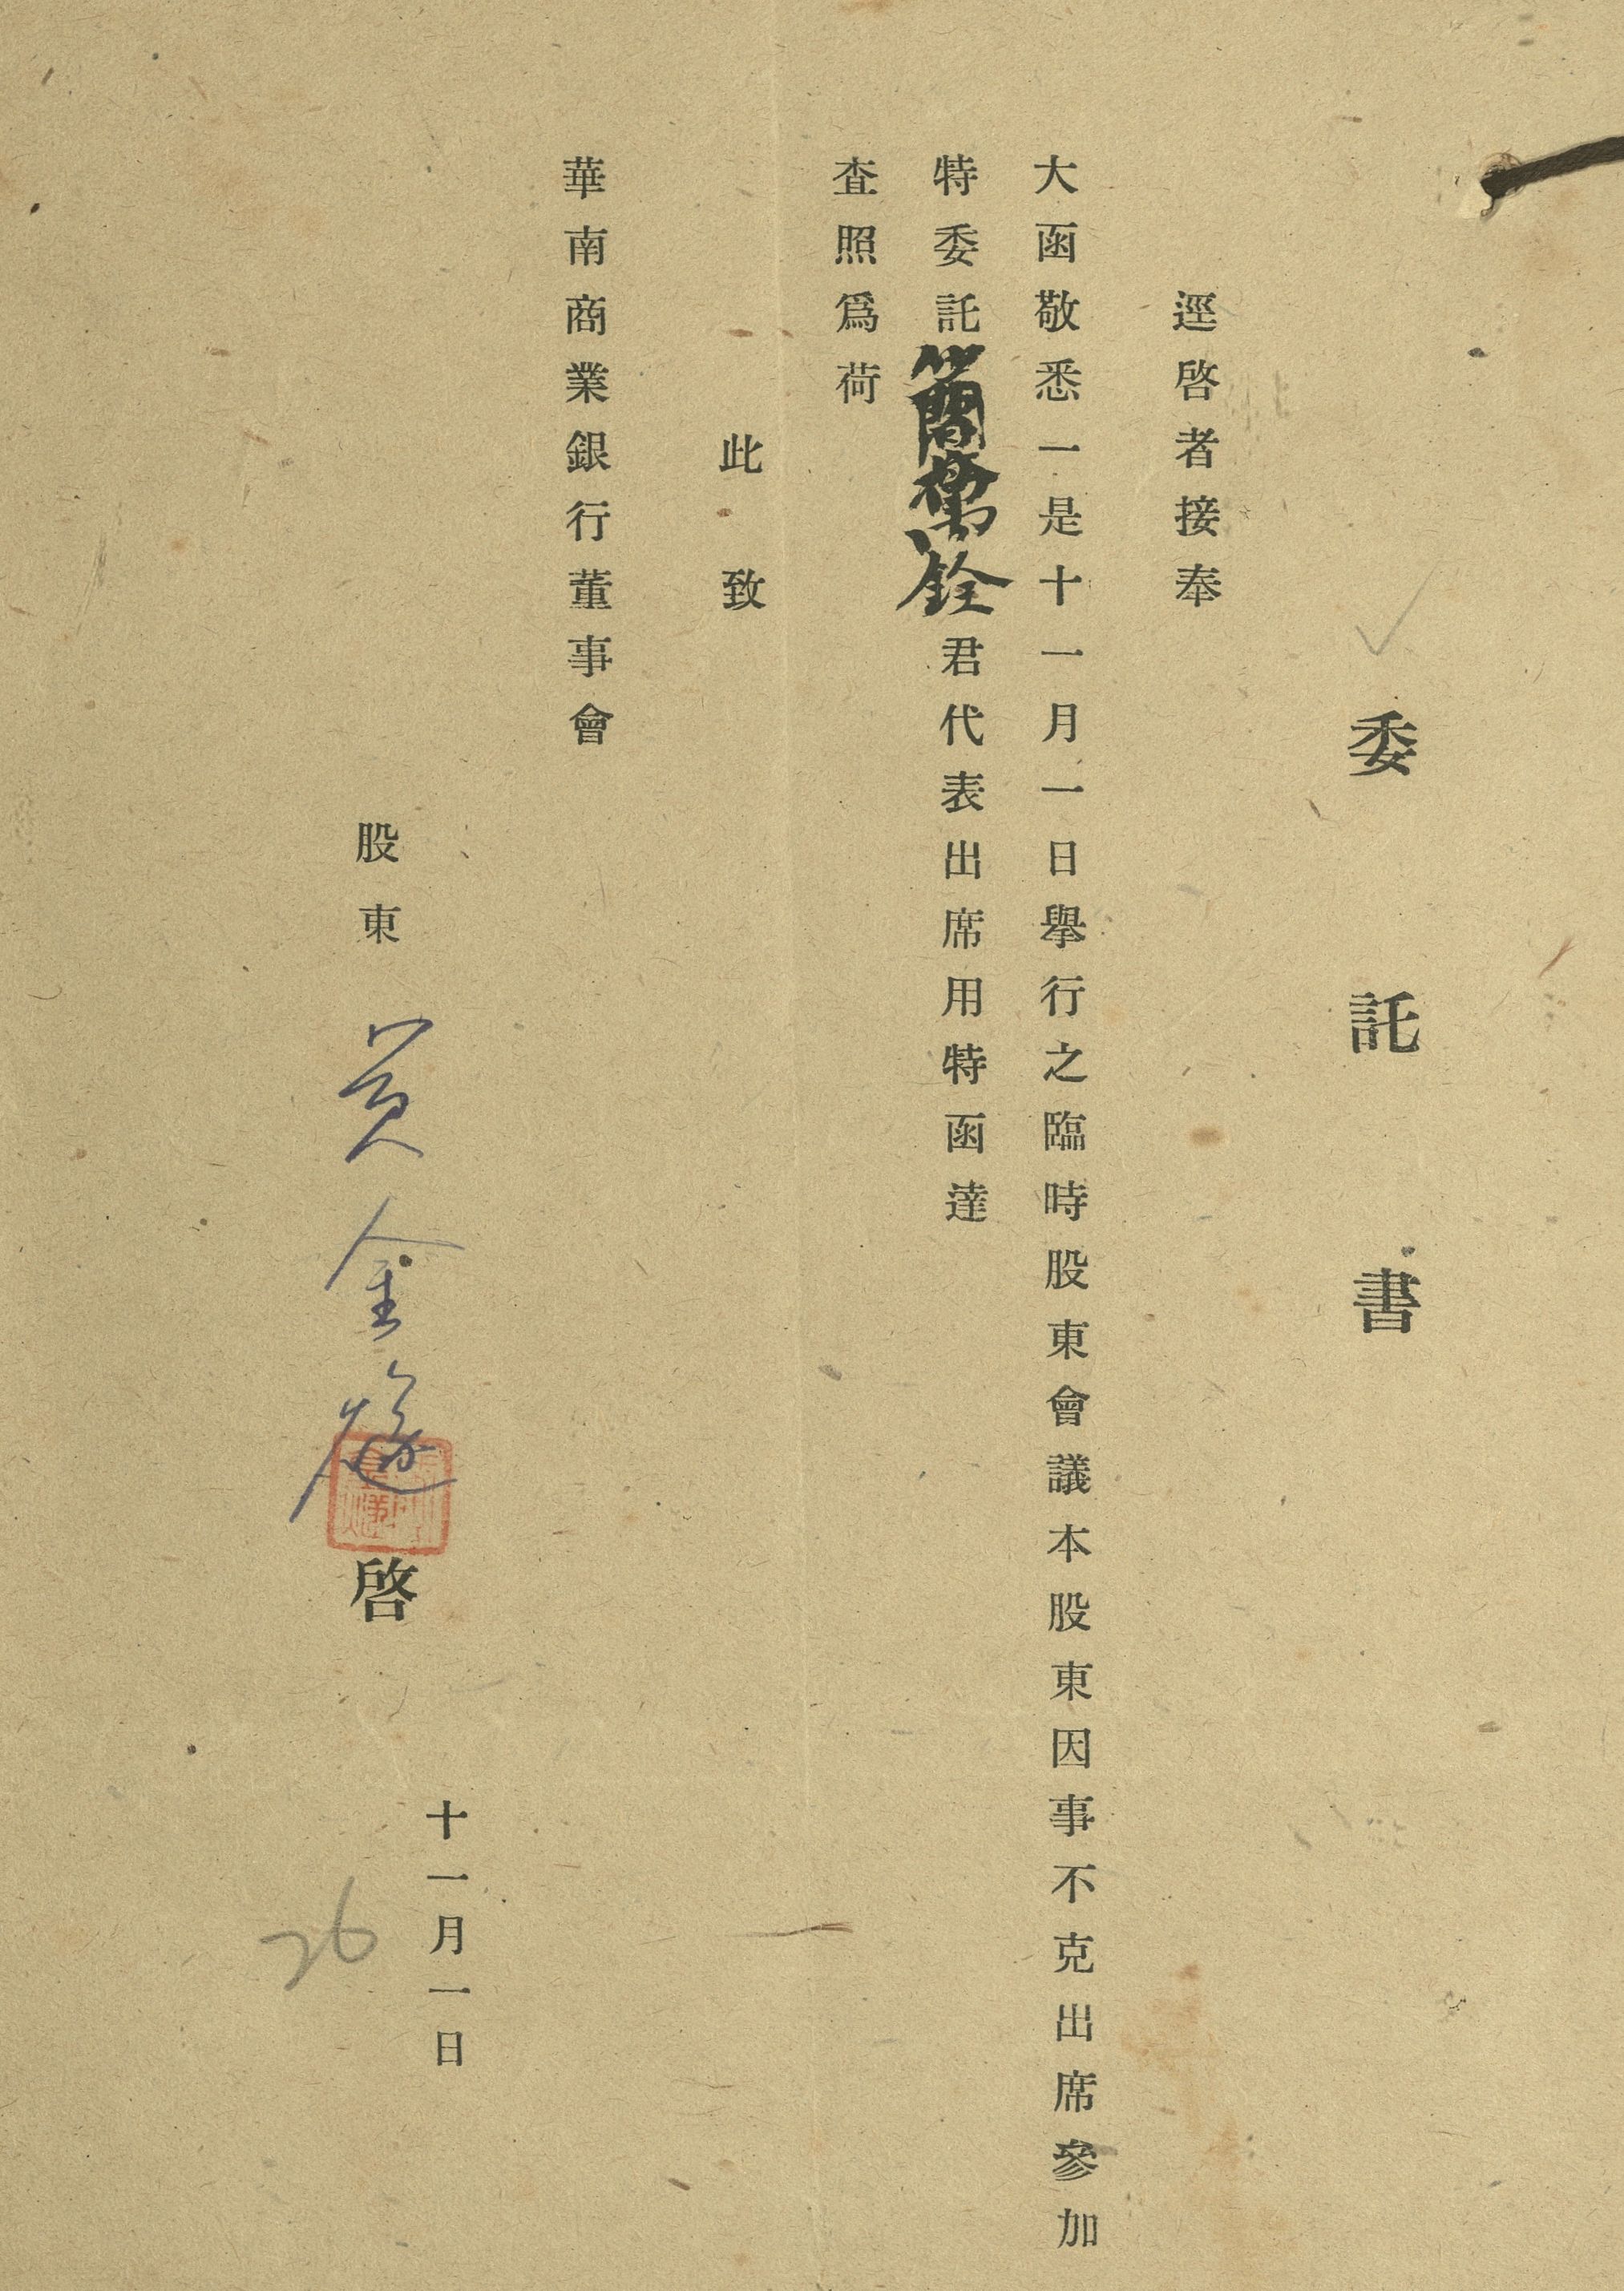 委託書
逕啓者接奉
大函敬悉一是十一月一日舉行之臨時股東會議本股東因事不克出席參加
特委託簡萬銓君代表出席用特函達
查照爲荷
此致
華南商業銀行董事會
十一月一日
股東 黃金燧 啓
26